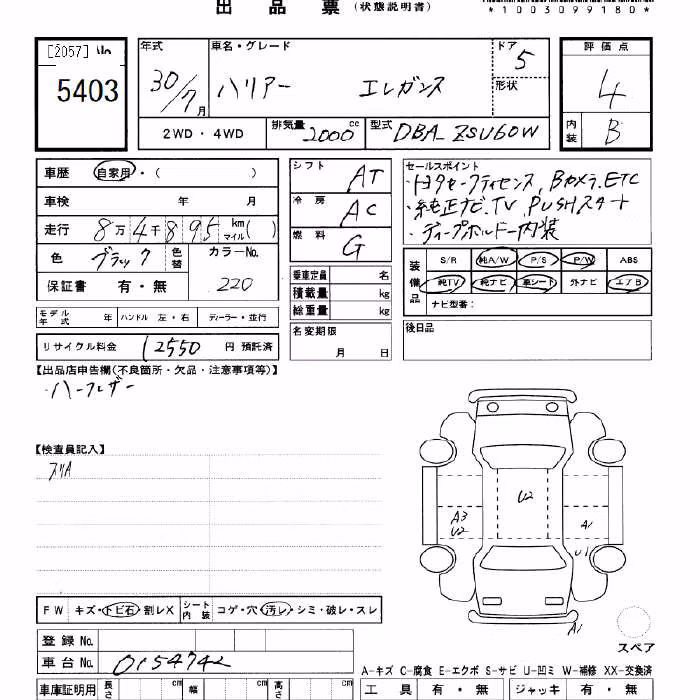 出品票 (状態説明書)
*1003099180*
[2057] No
5403
年式 30/7月
車名・グレード ハリアー エレガンス
ドア 5
形状
評価点 4
内装 B
2WD・4WD
排気量 2000 cc
型式 DBA-ZSU60W
車歴 自家用・( )
車検 年 月
走行 8万4千895 km マイル( )
色 ブラック 色替 カラーNo. 220
保証書 有・無
モデル年式 年 ハンドル 左・右 ディーラー・並行
リサイクル料金 12550 円 預託済
シフト AT
冷房 AC
燃料 G
乗車定員 名
積載量 kg
総重量 kg
名変期限 月 日
セールスポイント
・トヨタセーフティセンス、Bカメラ、ETC
・純正ナビ、TV、PUSHスタート
・ディープボルドー内装
装備品
S/R 純A/W P/S P/W ABS
純TV 純ナビ 革シート 外ナビ エアB
ナビ型番:
後日品
【出品店申告欄(不良箇所・欠品・注意事項等)】
・ハーフレザー
【検査員記入】
スリA
U2
A3
U2
A1
U1
A1
スペア
FW キズ・トビ石・割レX シート内装 コゲ・穴・汚レ・シミ・破レ・スレ
登録No.
車台No. 0154742
A-キズ C-腐食 E-エクボ S-サビ U-凹ミ W-補修 XX-交換済
車庫証明用 長さ cm 幅 cm 高さ cm
工具 有・無 ジャッキ 有・無